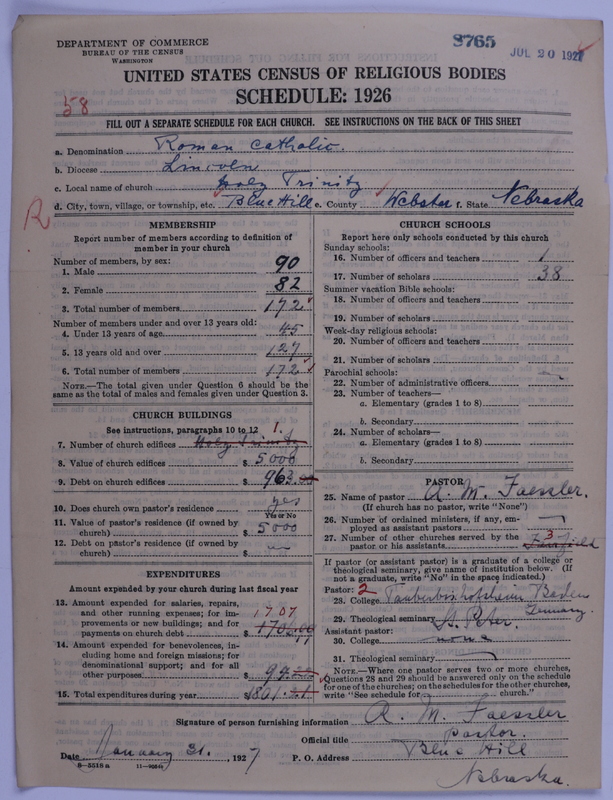 DEPARTMENT OF COMMERCE
BUREAU OF THE CENSUS
WASHINGTON
8765
JUL 20 1927
UNITED STATES CENSUS OF RELIGIOUS BODIES
SCHEDULE: 1926
58
FILL OUT A SEPARATE SCHEDULE FOR EACH CHURCH. SEE INSTRUCTIONS ON THE BACK OF THIS SHEET
a. Denomination Roman Catholic.
b. Diocese Lincoln
c. Local name of church Holy Trinity
d. City, town, village, or township, etc. Blue Hill e. County Webster f. State Nebraska
R
MEMBERSHIP
Report number of members according to definition of
member in your church
Number of members, by sex:
1. Male 90
2. Female 82
3. Total number of members 172
Number of members under and over 13 years old:
4. Under 13 years of age 45
5. 13 years old and over 127
6. Total number of members 172
NOTE.—The total given under Question 6 should be
same as the total of males and females given under Question 3.
CHURCH BUILDINGS
See instructions, paragraphs 10 to 12
7. Number of church edifices Holy Trinity 1
8. Value of church edifices $ 5000
9. Debt on church edifices $ 963
10. Does church own pastor's residence yes
Yes or No
11. Value of pastor's residence (if owned by
church) $ 5000
12. Debt on pastor's residence (if owned by
church) $
EXPENDITURES
Amount expended by your church during last fiscal year
13. Amount expended for salaries, repairs,
and other running expenses; for im-
provements or new buildings; and for
payments on church debt $ 1707
14. Amount expended for benevolences, in-
cluding home and foreign missions; for
denominational support; and for all
other purposes $ 94
15. Total expenditures during year $ 1801
CHURCH SCHOOLS
Report here only schools conducted by this church
Sunday schools:
16. Number of officers and teachers 1
17. Number of scholars 38
Summer vacation Bible schools:
18. Number of officers and teachers
19. Number of scholars
Week-day religious schools:
20. Number of officers and teachers
21. Number of scholars
Parochial schools:
22. Number of administrative officers
23. Number of teachers—
a. Elementary (grades 1 to 8)
b. Secondary
24. Number of scholars—
a. Elementary (grades 1 to 8)
b. Secondary
PASTOR
25. Name of pastor A. M. Faessler.
(If church has no pastor, write "None")
26. Number of ordained ministers, if any, em-
ployed as assistant pastors
27. Number of other churches served by the
pastor or his assistants 3 Fairfield
If pastor (or assistant pastor) is a graduate of a college or
theological seminary, give name of institution below. (If
not a graduate, write "No" in the space indicated.)
Pastor: 2
28. College Tauberbishofsheim Baden
Germany.
29. Theological seminary St. Peter.
Assistant pastor:
30. College none
31. Theological seminary
NOTE.—Where one pastor serves two or more churches,
Questions 28 and 29 should be answered only on the schedule
for one of the churches; on the schedules for the other churches,
write "See schedule for church."
Signature of person furnishing information A. M. Faessler
Official title pastor.
Date January 31, 1927 P. O. Address Blue Hill
Nebraska.
8—5518 a